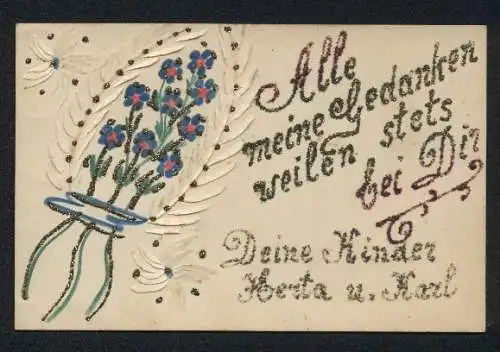 Alle
meine Gedanken
weilen stets
bei Dir
Deine Kinder
Herta u. Karl